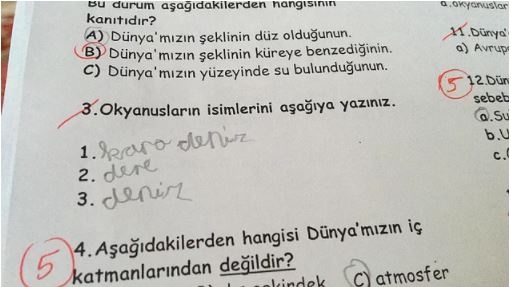 Bu durum aşağıdakilerden hangisinin
kanıtıdır?
A) Dünya'mızın şeklinin düz olduğunun.
B) Dünya'mızın şeklinin küreye benzediğinin.
C) Dünya'mızın yüzeyinde su bulunduğunun.
3.Okyanusların isimlerini aşağıya yazınız.
1. kara deniz
2. dere
3. deniz
5
4.Aşağıdakilerden hangisi Dünya'mızın iç
katmanlarından değildir?
C) atmosfer
a.okyanuslar
11.Dünya'
a) Avrup
5
12.Dün
sebeb
a.Su
b.U
c.